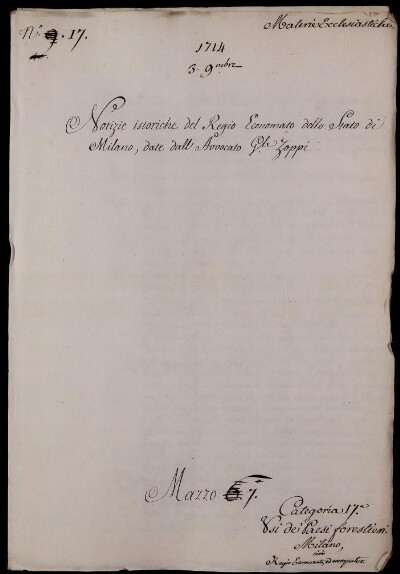 N.° 17.
Materie Ecclesiastiche.
1714
3. 9mbre
Notizie istoriche del Regio Economato dello Stato di
Milano, date dall' Avvocato Gta Zoppi
Mazzo 7.
Categoria 17.a
Usi de' Paesi forestieri
Milano,
cioè
Regio Economato,